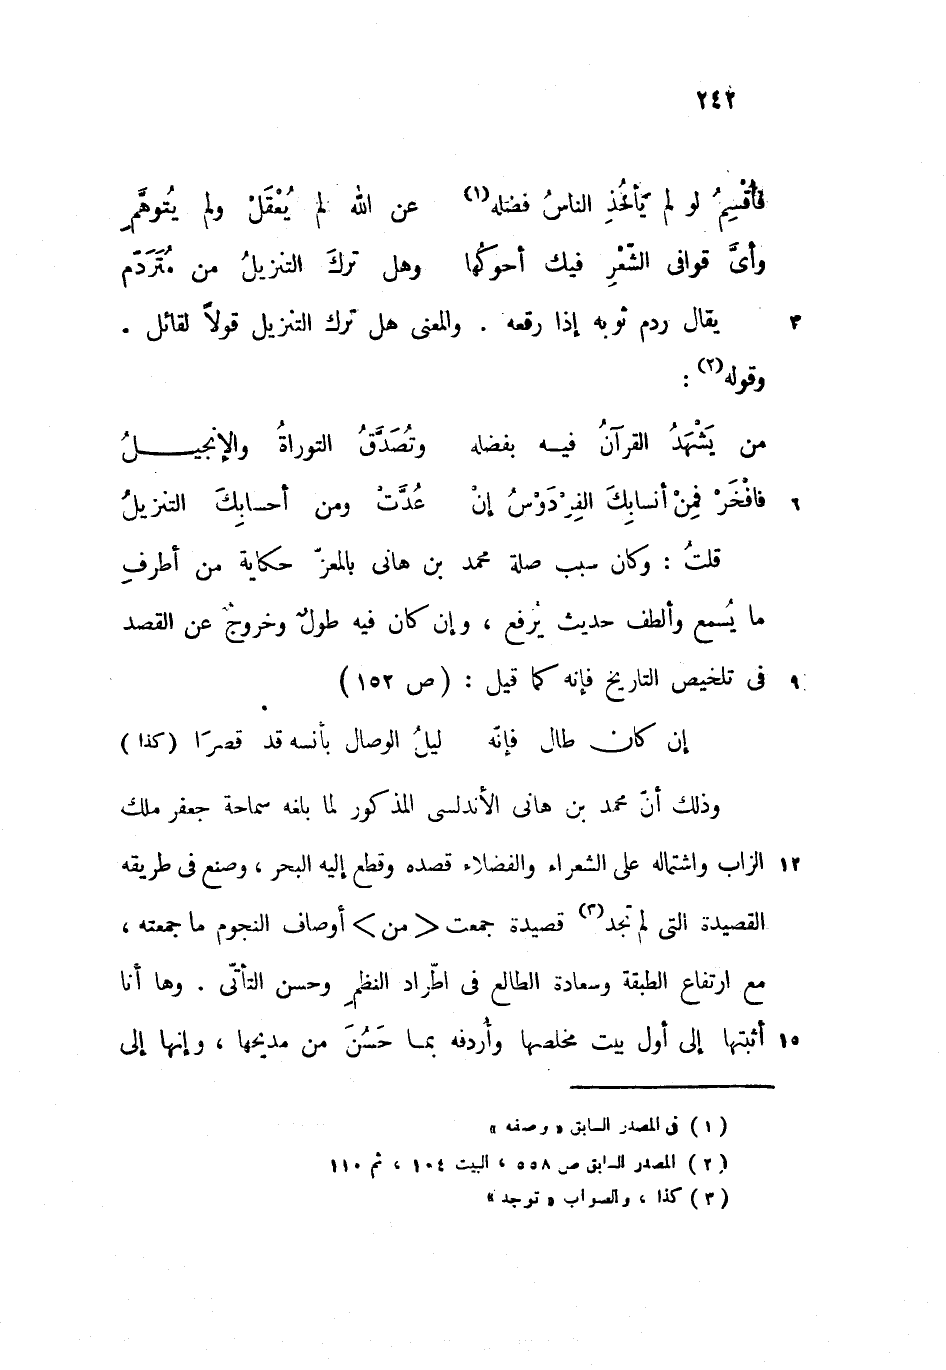 ٢٤٢
فأُقْسِمُ لو لم يَأخُذِ الناسُ فضله(١) عن الله لم يُعْقَلْ ولم يُتوهَّمِ
وأىَّ قوافى الشّعْرِ فيك أحوكُها وهل تركَ التنزيلُ من مُتَرَدّم
٣ يقال ردم ثوبه إذا رقعه . والمعنى هل ترك التنزيل قولاً لقائل .
وقوله(٢) :
من يَشْهَدُ القرآنُ فيه بفضله وتُصَدَّقُ التوراةُ والإنجيلُ
٦ فافْخَرْ فمِنْ أنسابِكَ الفِرْدَوْسُ إنْ عُدَّتْ ومن أحسابِكَ التنزيلُ
قلتُ : وكان سبب صلة محمد بن هانى بالمعزّ حكاية من أطرفِ
ما يُسمع وألطف حديث يُرفع ، وإن كان فيه طولٌ وخروجٌ عن القصد
٩ فى تلخيص التاريخ فإنه كما قيل : (ص ١٥٢)
إن كان طال فإنّه ليلُ الوصال بأنسه قد قصرَا (كذا)
وذلك أنّ محمد بن هانى الأندلسى المذكور لما بلغه سماحة جعفر ملك
١٢ الزاب واشتماله على الشعراء والفضلاء قصده وقطع إليه البحر ، وصنع فى طريقه
القصيدة التى لم تجد(٣) قصيدة جمعت <من> أوصاف النجوم ما جمعته ،
مع ارتفاع الطبقة وسعادة الطالع فى اطّراد النظمِ وحسن التأتّى . وها أنا
١٥ أثبتها إلى أول بيت مخلصها وأُردفه بما حَسُنَ من مديحها ، وإنها إلى
(١) فى المصدر السابق « وصفه »
(٢) المصدر السابق ص ٥٥٨ ، البيت ١٠٤ ، ثم ١١٠
(٣) كذا ، والصواب « توجد »